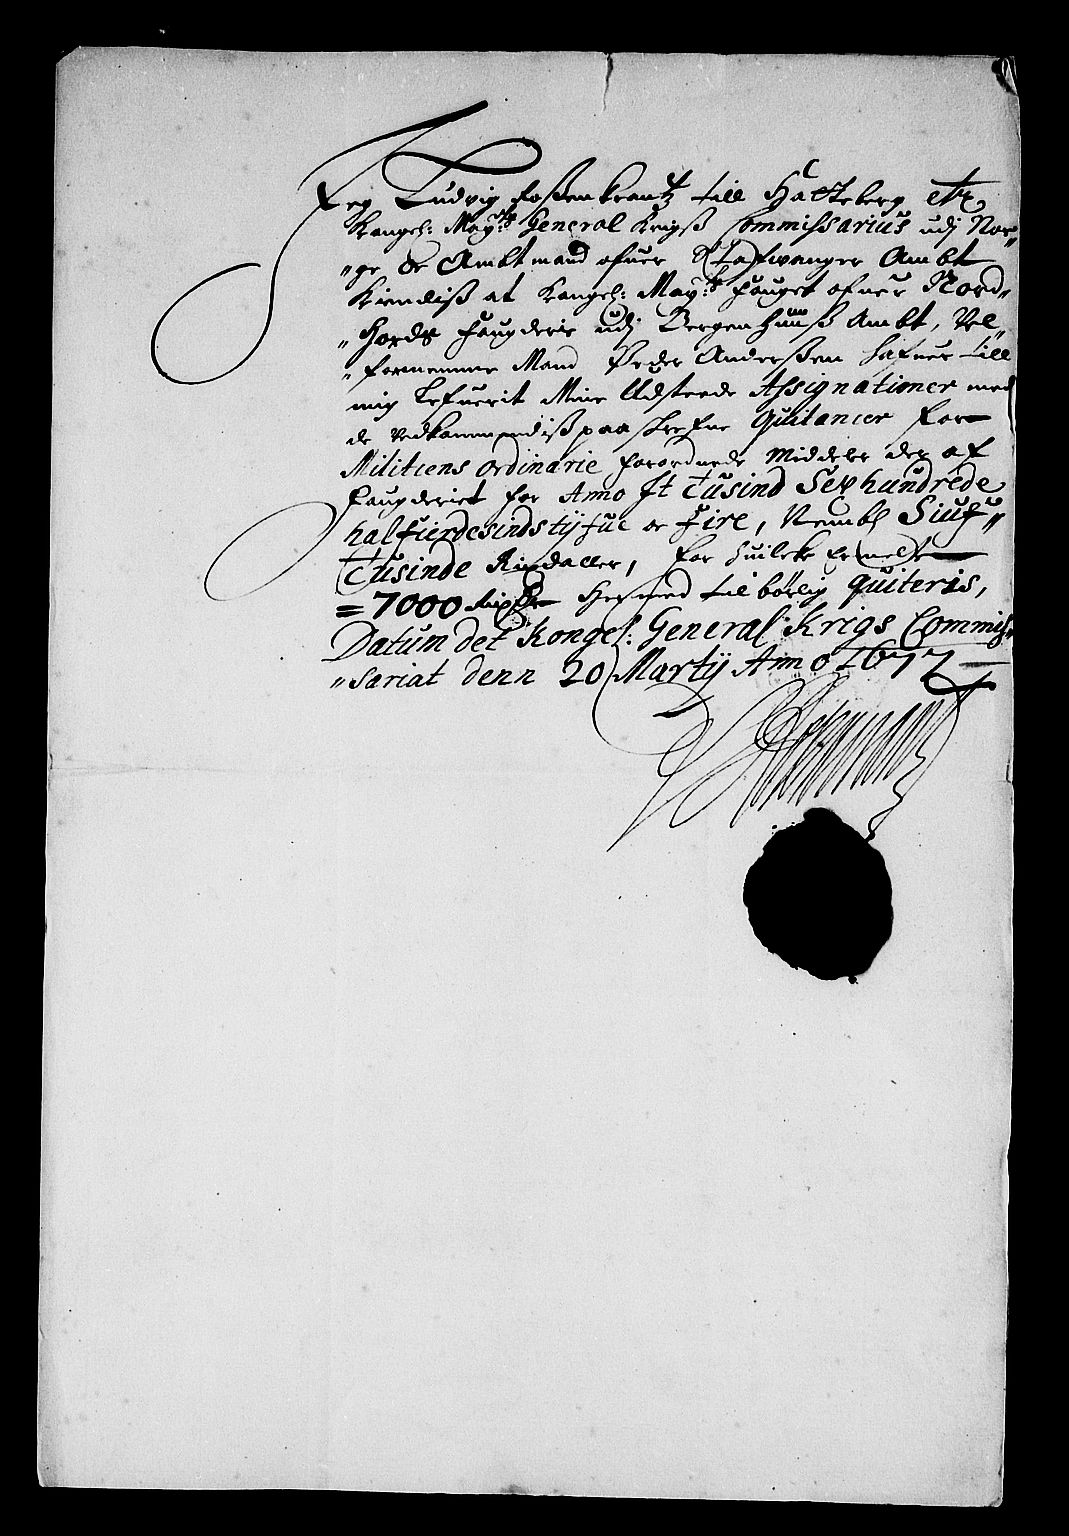 Jeg Ludvig Rossenkrantz till Hatteberg etc
Kongel: May:ts General Krigs Commissarius udj Nor„
„ge oc Ambtmand ofuer Stafwanger Ambt
Kiendiß at Kongel: May:ts Fouget ofuer Nord„
„Hords Fougderie udj Bergenhuuß Ambt, Vel„
„fornemme Mand Peder Anderßen hafuer till
mig Lefuerit Mine Udstædde Assignationer med
de vedkommendiß paaskrefne Quitancer for
Militiens ordinarie forordnede Middeler der af
Fougderiet for Anno Jt Tusind Sexhundrede
halfierdesindstijfue oc Fire, Nembl Siuf„
Tusinde Rixdaller, for huilcke ermelte
=7000 Rixdr hermed tilbørlig quiteris,
Datum det Kongel: General Krigs Commis„
„sariat denn 20 Martij Anno 1677